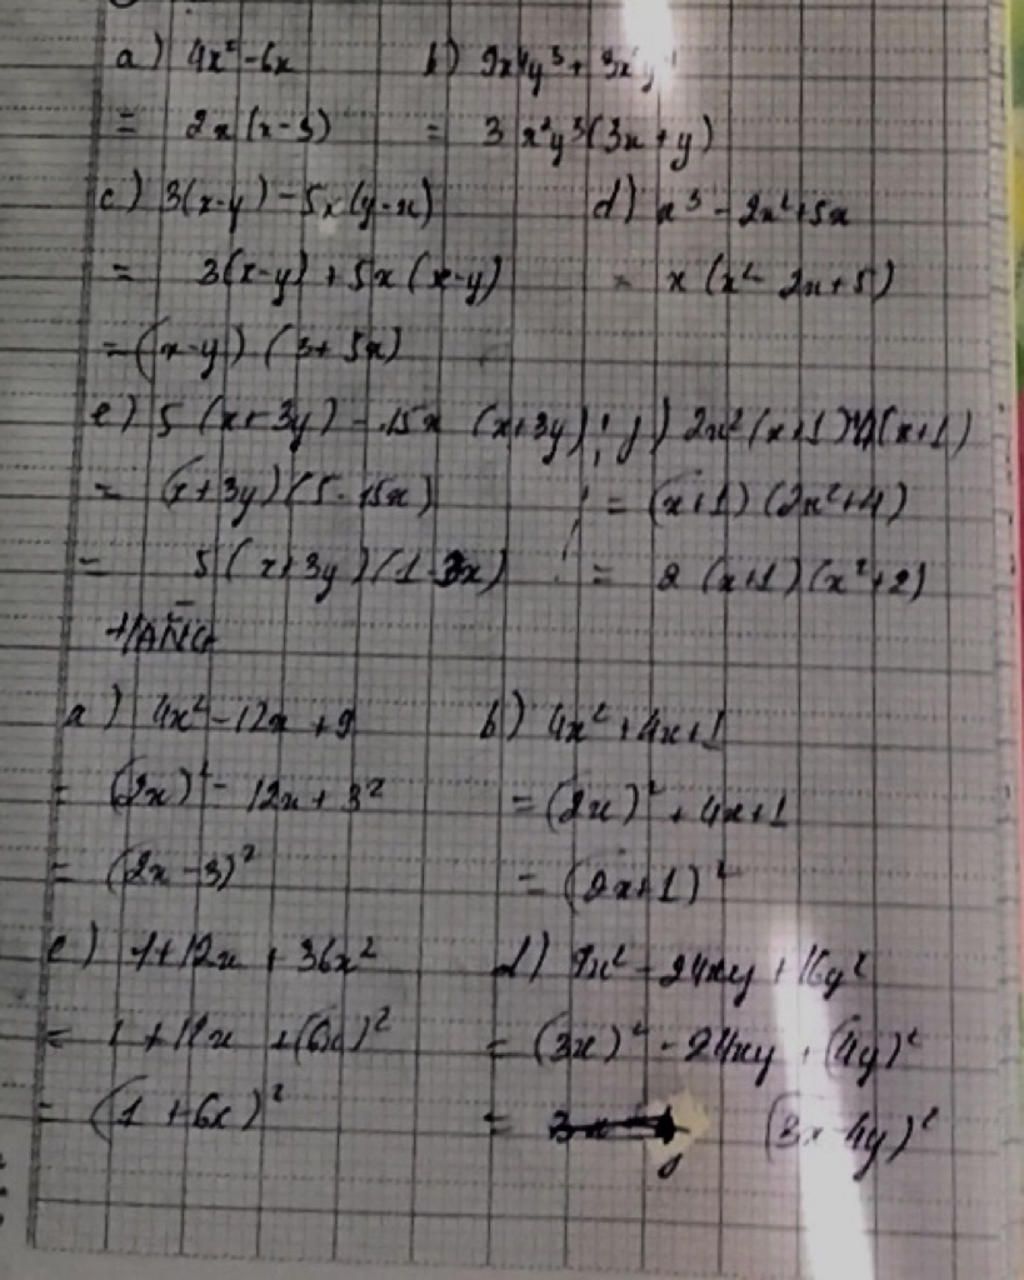 a) 4x² - 6x b) 9x⁴y³ + 3x²y⁴
= 2x(x-3) = 3x²y³(3x+y)
c) 3(x-y) - 5x(y-x) d) x³ - 2x² + 5x
= 3(x-y) + 5x(x-y) = x(x² - 2x + 5)
= (x-y)(3+5x)
e) 5(x+3y) - 15x(x+3y) ; f) 2x²(x+1)+4(x+1)
= (x+3y)(5-15x) = (x+1)(2x²+4)
= 5(x+3y)(1-3x) = 2(x+1)(x²+2)
a) 4x² - 12x + 9 b) 4x² + 4x + 1
= (2x)² - 12x + 3² = (2x)² + 4x + 1
= (2x-3)² = (2x+1)²
c) 1 + 12x + 36x² d) 9x² - 24xy + 16y²
= 1 + 12x + (6x)² = (3x)² - 24xy + (4y)²
= (1+6x)² = (3x-4y)²